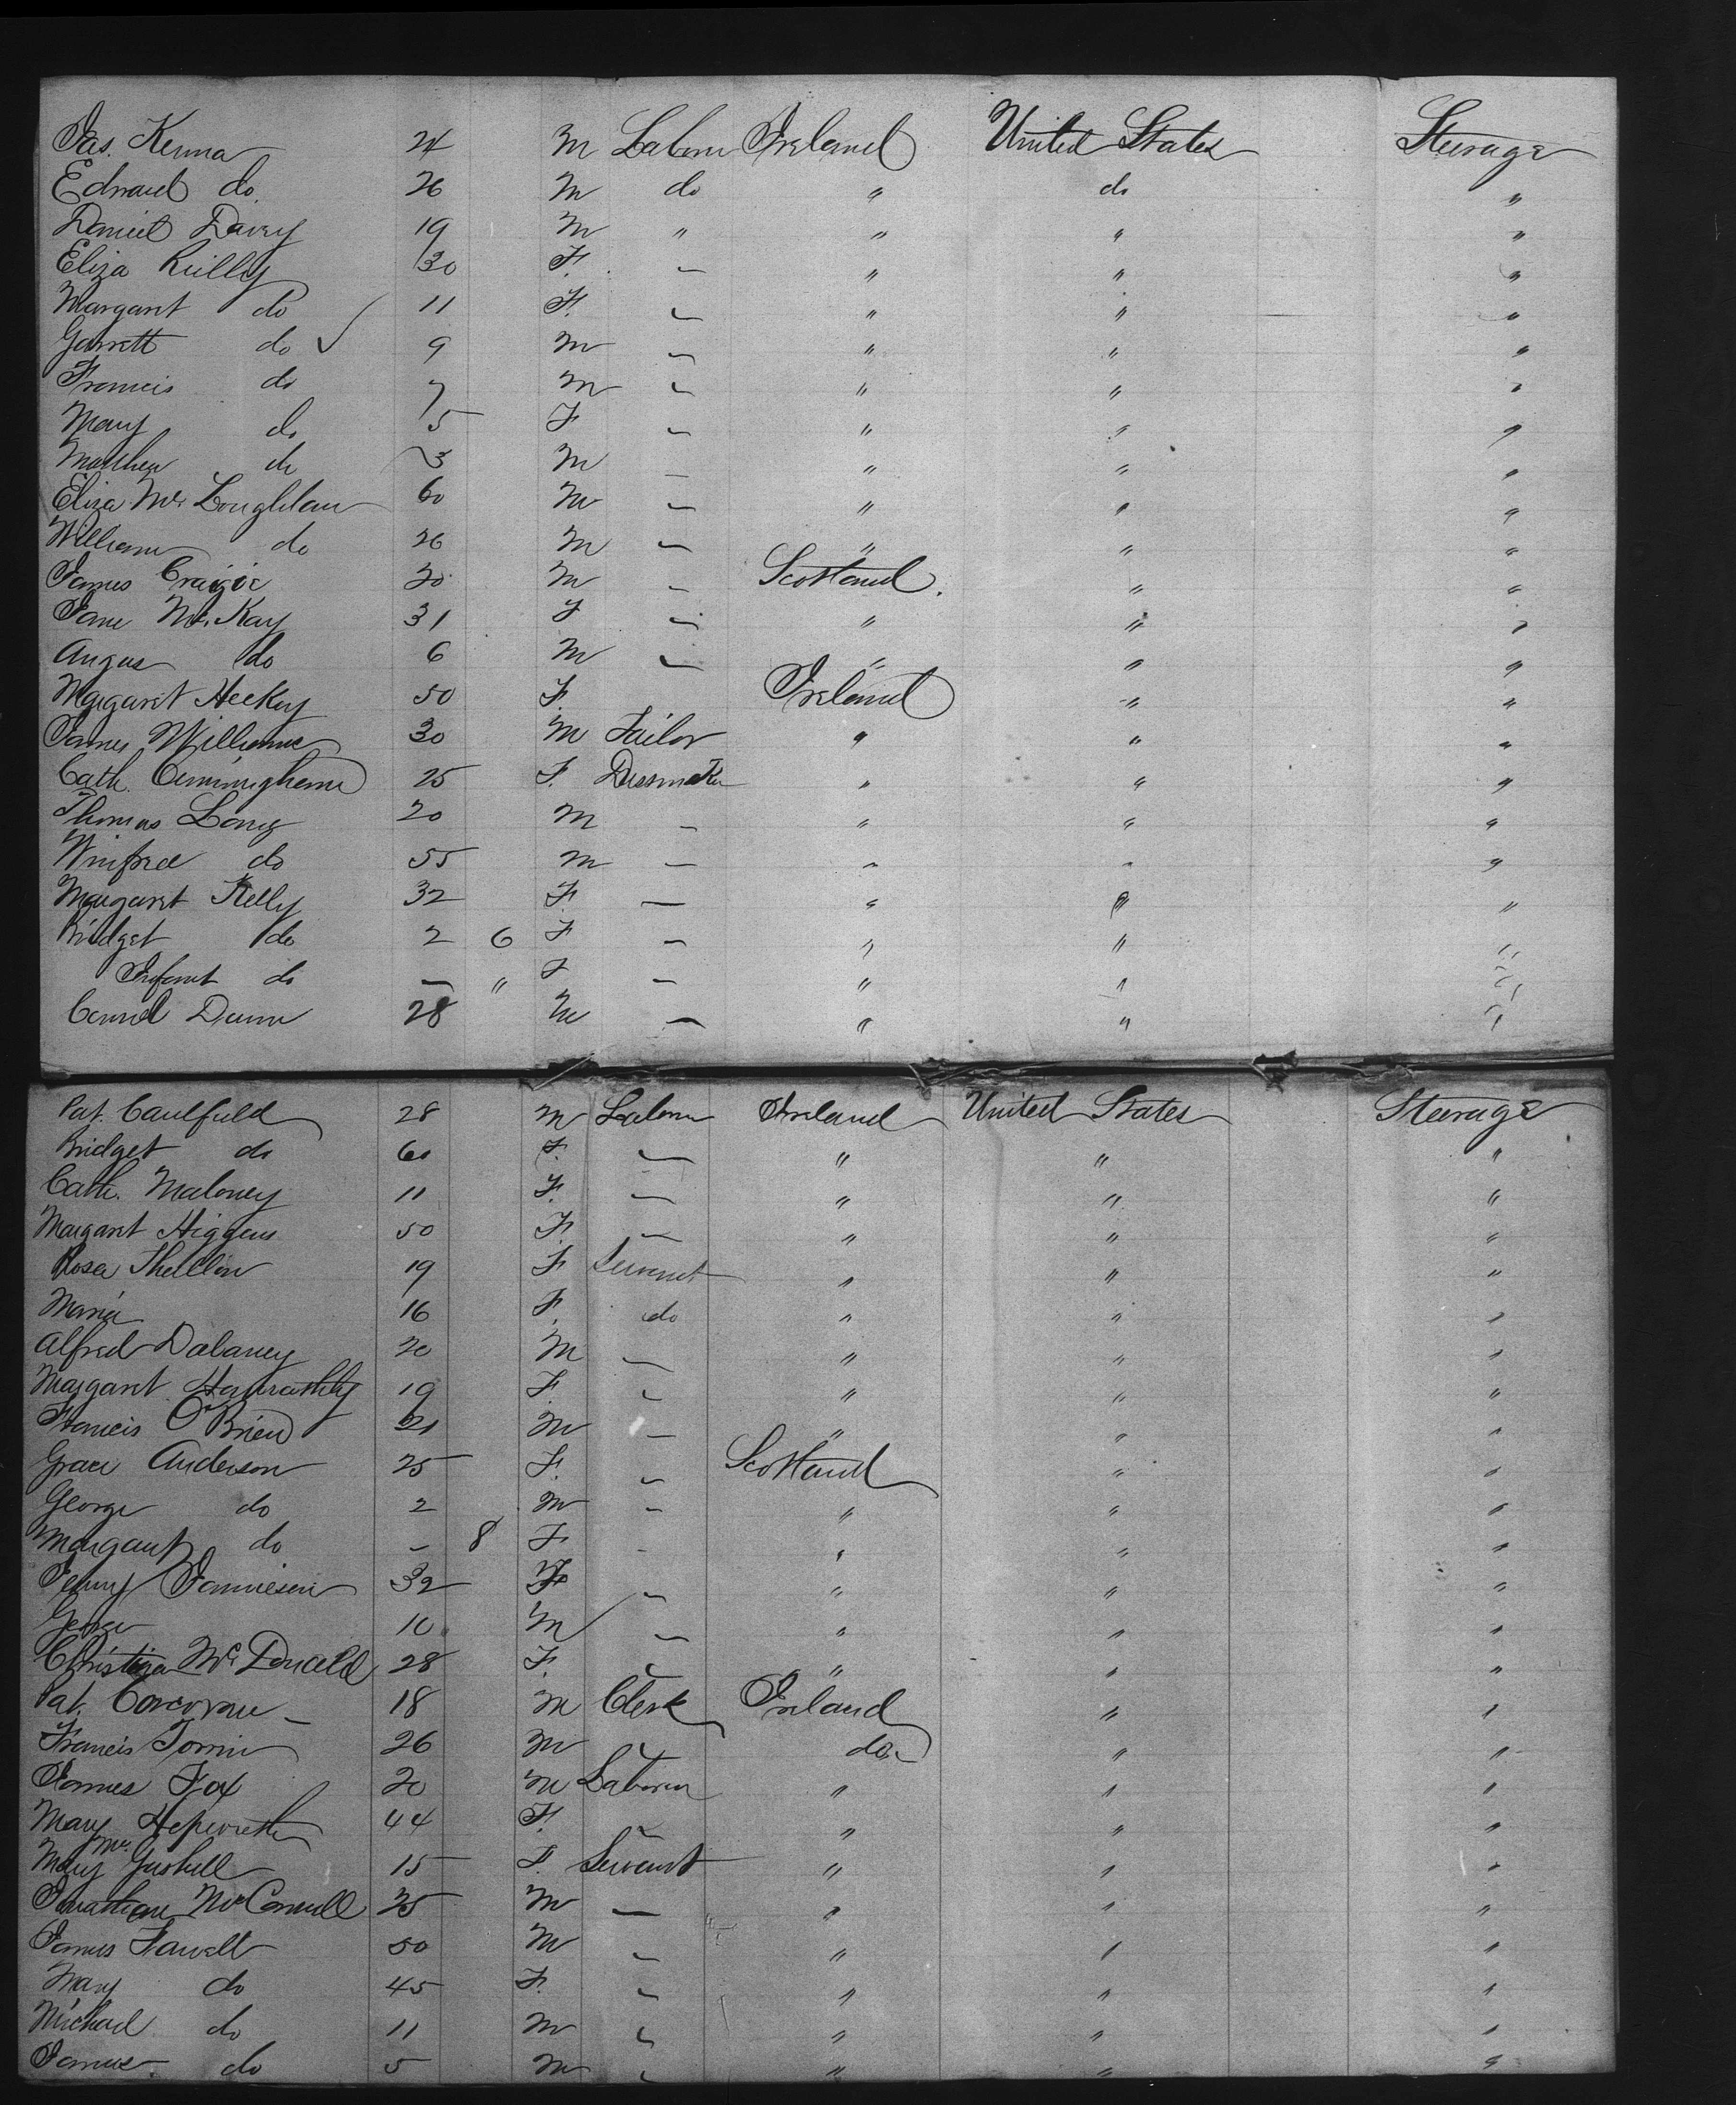 Jas. Kenna 24 M Labour Ireland United States Steerage
Edward do. 26 M do " do "
Daniel Davey 19 M " " " "
Eliza Reilly 30 F. — " " "
Margaret do 11 F. — " " "
Garrett do ✓ 9 M — " " "
Francis do 7 M — " " "
Mary do 5 F — " " "
Matthew do 3 M — " " "
Eliza Mc Loughlan 60 M — " " "
William do 26 M — " " "
James Craigie 20 M — Scotland. " "
Jane Mc. Kay 31 F — " " "
Angus do 6 M — " " "
Margaret Heekey 50 F. Ireland " "
James Williams 30 M Tailor " " "
Cath. Cunningham 25 F. Dressmaker " " "
Thomas Long 20 M — " " "
Winifred do 55 M — " " "
Margaret Kelly 32 F. — " " "
Bridget do 2 6 F — " " "
Infant do — " F — " " "
Dunn 28 M — " " "
Pat. Caulfield 28 M Labour Ireland United States Steerage
Bridget do 60 F. — " " "
Cath. Maloney 11 F. — " " "
Margaret Higgens 50 F. — " " "
Rosa 19 F Servant " " "
Maria 16 F. do " " "
Alfred Dalaney 20 M — " " "
Margaret 19 F. — " " "
Francis O'Brien 21 M — " " "
Grace Anderson 25 F. — Scotland " "
George do 2 M — " " "
Margaret do — 8 F — " " "
Jenny Jamieson 32 F — " " "
George 10 M — " " "
Christina Mc Donald 28 F. — " " "
Pat. Corcoran — 18 M Clerk Ireland " "
Francis 26 M — do. " "
James Fox 20 M Laborer " " "
Mary Hepworth 44 F. — " " "
Mary Mc. Gaskell 15 F. Servant " " "
Jonathan Mc Connell 25 M — " " "
James Fawcett 50 M — " " "
Mary do 45 F. — " " "
Michael do 11 M — " " "
James do 5 M — " " "